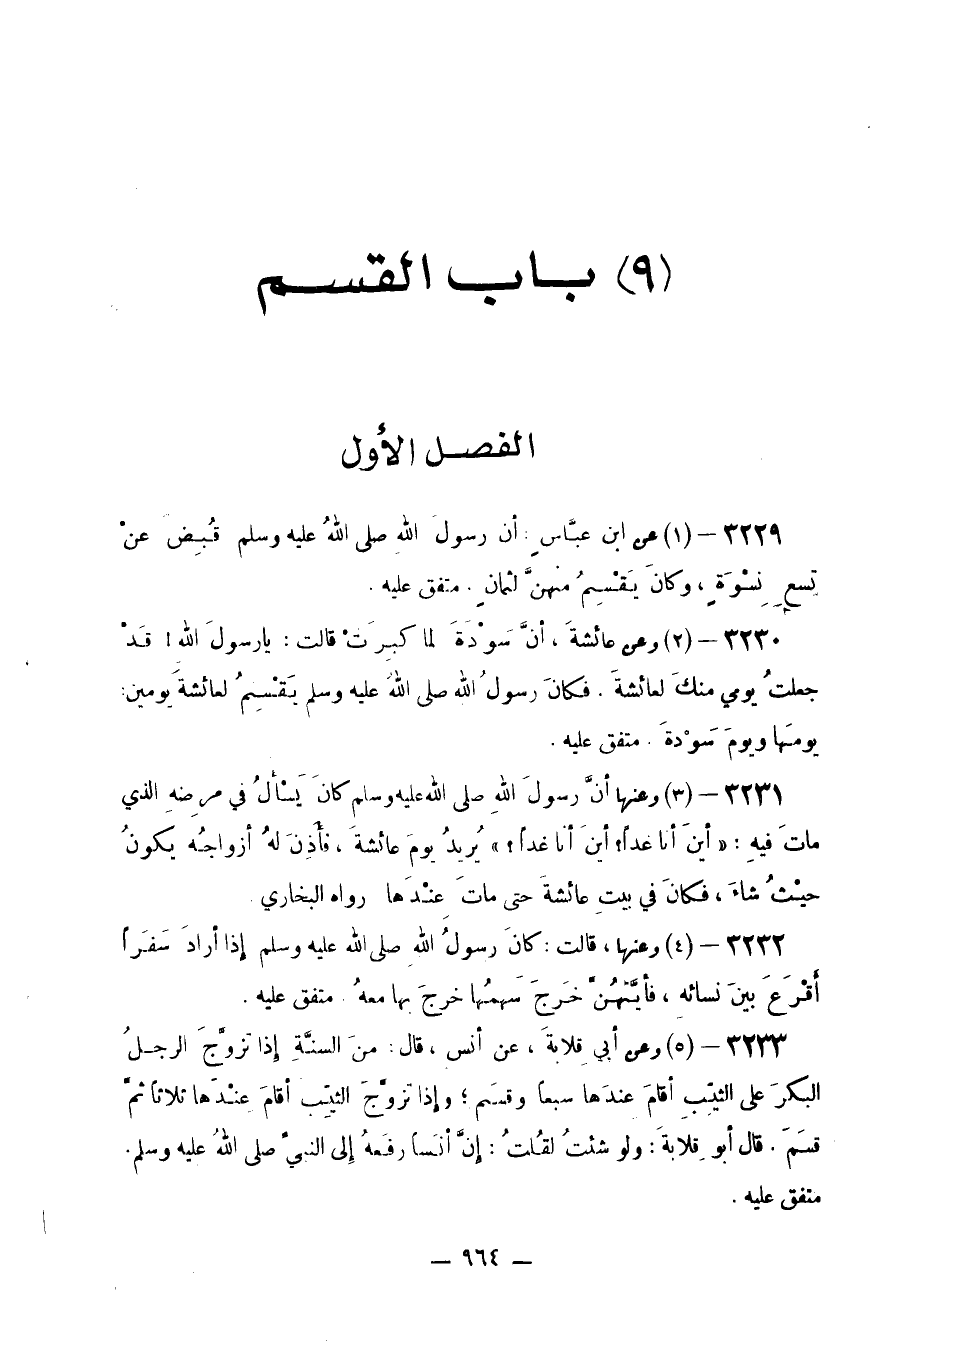 (٩) باب القسم
الفصل الأول
٣٢٢٩ – (١) عن ابن عبَّاسٍ : أن رسولَ اللهِ صلى اللهُ عليه وسلم قُبِضَ عنْ
تِسعِ نِسْوَةٍ ، وكانَ يَقْسِمُ منهنَّ لثمانٍ . متفق عليه .
٣٢٣٠ – (٢) وعن عائشةَ ، أنَّ سَوْدَةَ لما كبِرَتْ قالت : يارسولَ الله ! قَدْ
جعلتُ يومي منكَ لعائشةَ . فكانَ رسولُ الله صلى اللهُ عليه وسلم يَقْسِمُ لعائشةَ يومين:
يومَها ويومَ سَوْدةَ . متفق عليه .
٣٢٣١ – (٣) وعنها أنَّ رسولَ اللهِ صلى الله عليه وسلم كانَ يَسْألُ في مرضِهِ الذي
ماتَ فيهِ : « أينَ أنا غداً؟ أينَ أنا غداً؟ » يُريدُ يومَ عائشةَ ، فأَذِنَ لهُ أزواجُه يكونُ
حيْثُ شاءَ ، فكانَ في بيتِ عائشةَ حتى ماتَ عِنْدَها رواه البخاري .
٣٢٣٢ – (٤) وعنها ، قالت : كانَ رسولُ اللهِ صلى الله عليه وسلم إذا أرادَ سَفَراً
أَقْرَعَ بينَ نسائه ، فأيَّتُهُنَّ خَرجَ سَهمُها خرجَ بها معهُ . متفق عليه .
٣٢٣٣ – (٥) وعن أبي قِلابةَ ، عن أنس ، قال : منَ السنَّةِ إذا تزوَّجَ الرجلُ
البكرَ على الثيّبِ أقامَ عندَها سبعاً وقسَم ؛ وإذا تزوَّجَ الثيّبَ أقامَ عِنْدَها ثلاثاً ثمَّ
قسَمَ . قال أبو قِلابةَ : ولو شئتُ لقُلتُ : إنَّ أنَساً رفَعهُ إلى النبيِّ صلى اللهُ عليه وسلم.
متفق عليه .
— ٩٦٤ —